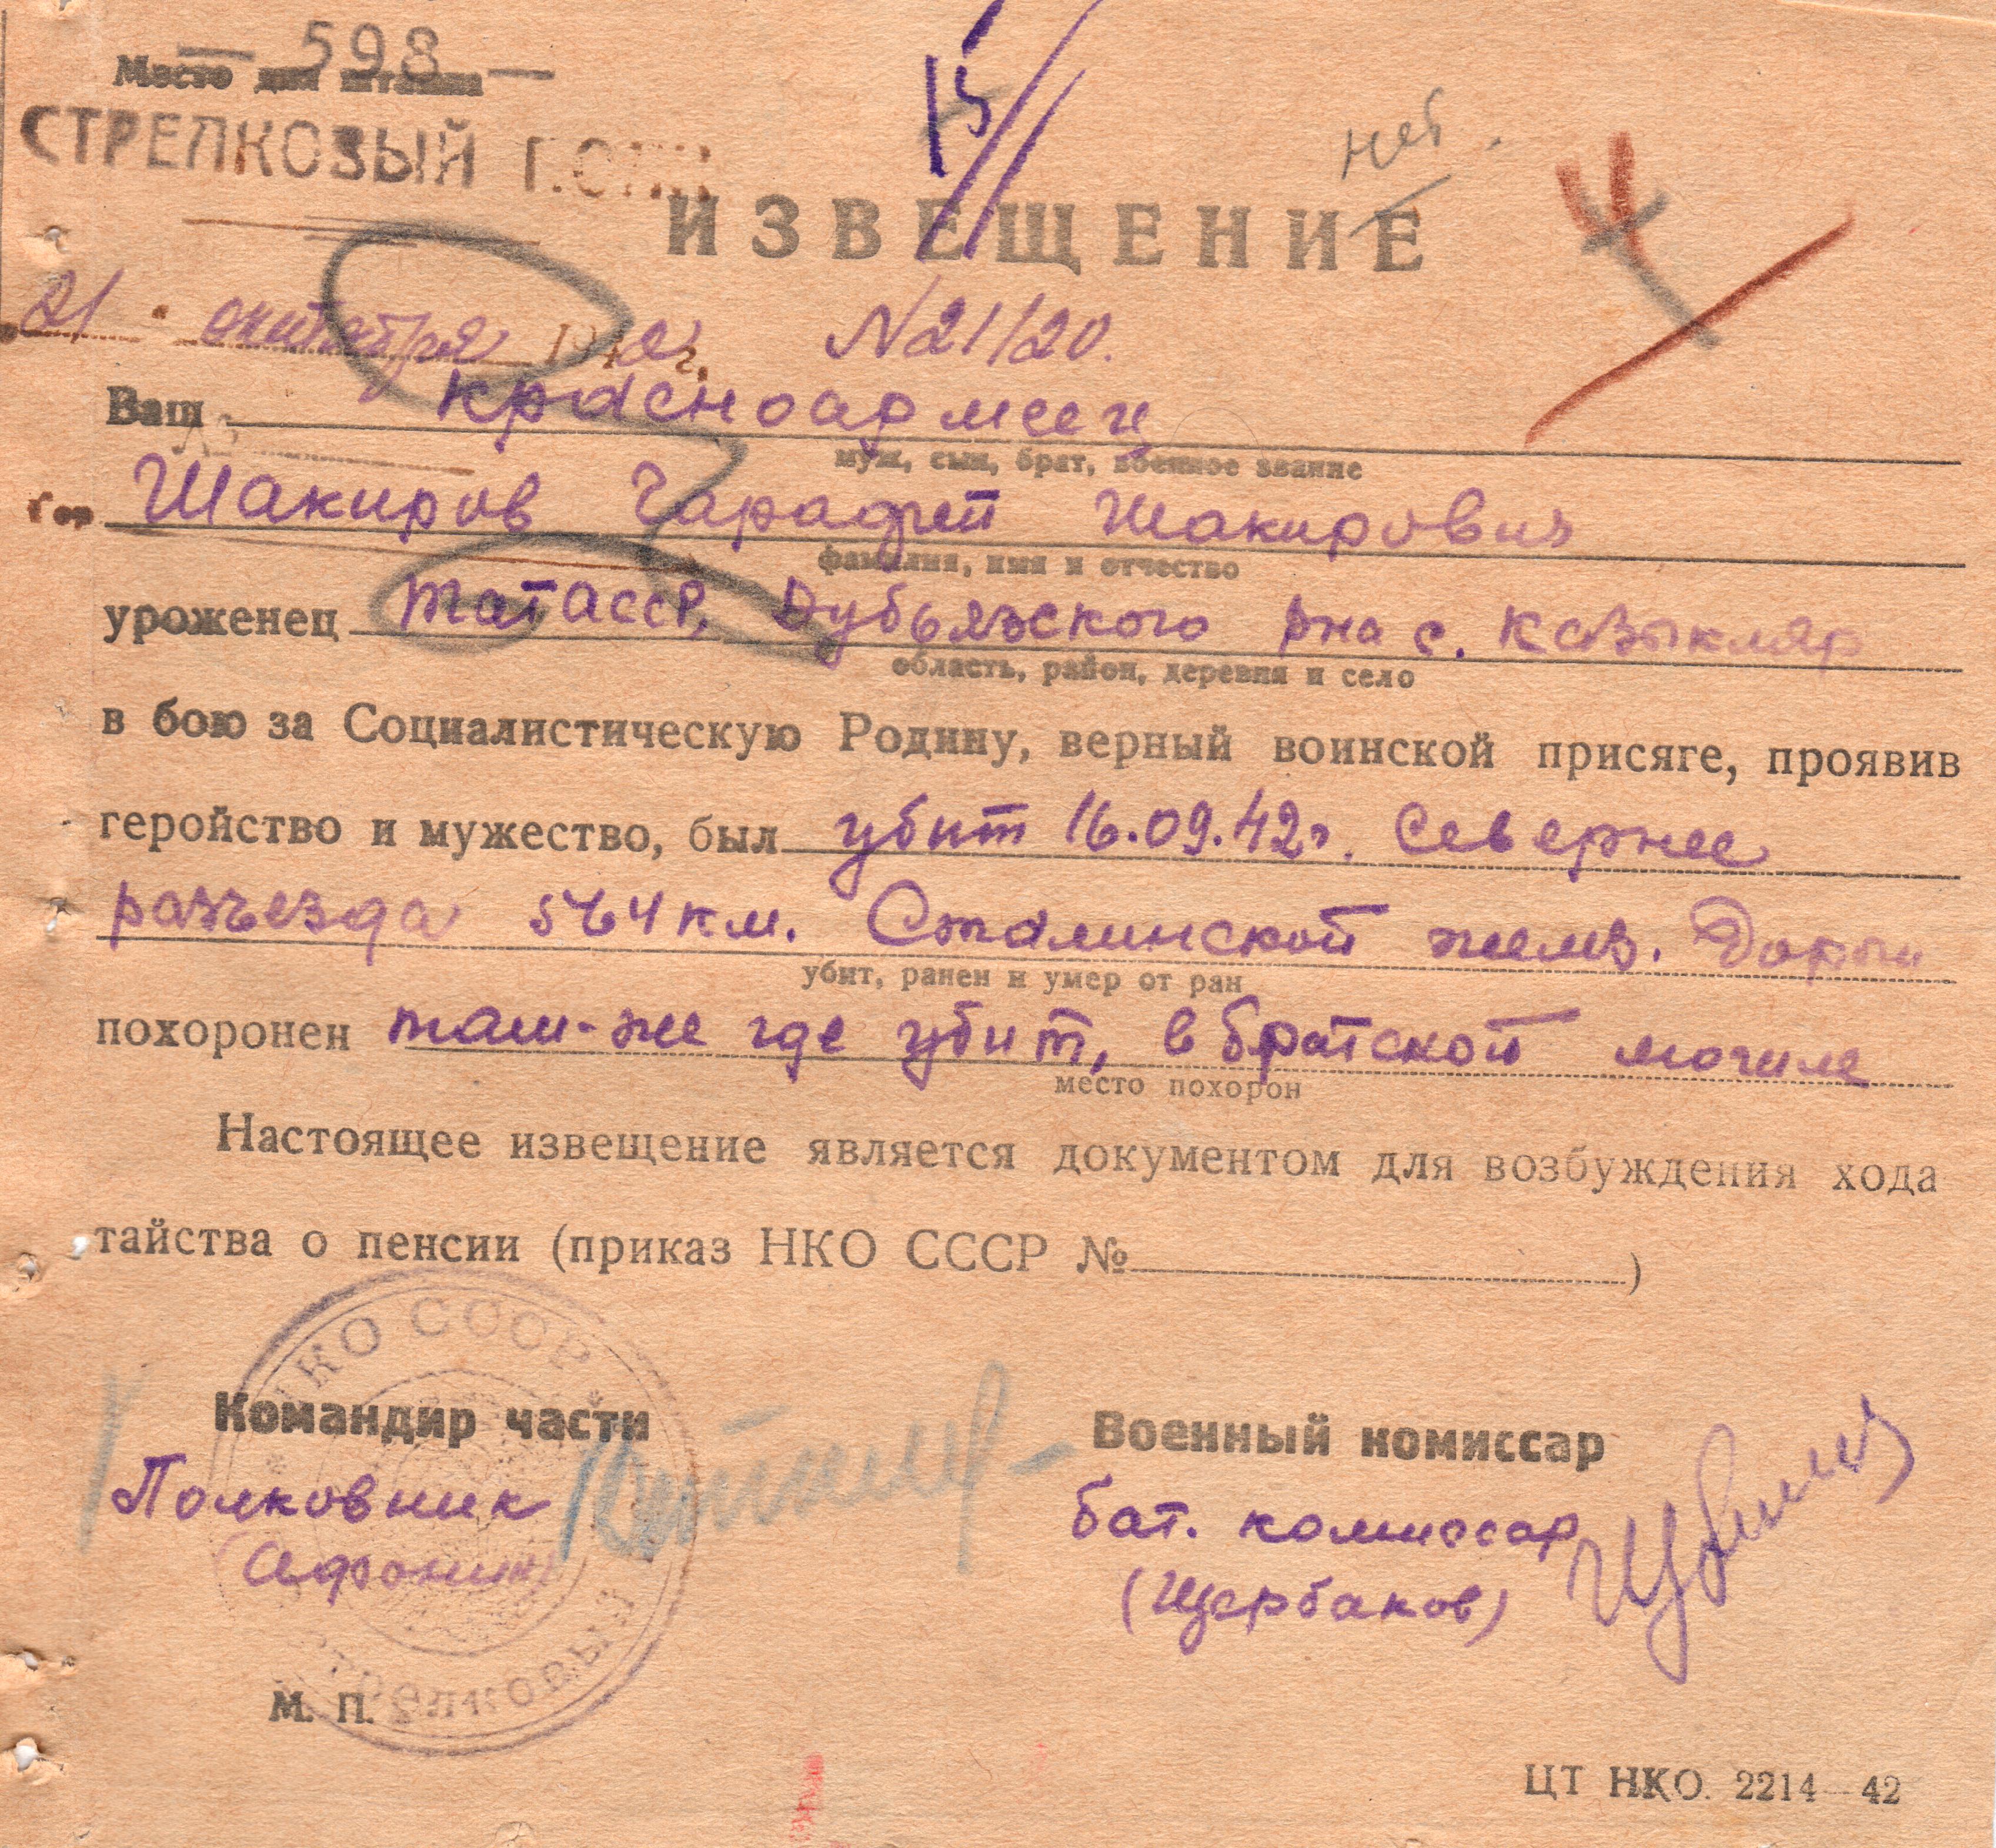 — 598 —
Место для штампа
СТРЕЛКОВЫЙ
15
нет.
ИЗВЕЩЕНИЕ
21 октября 1942 г. N21/20.
Ваш красноармеец
муж, сын, брат, военное звание
Шакиров Шакирович
фамилия, имя и отчество
уроженец ТатАССР, Дубьязского рна с.
область, район, деревня и село
в бою за Социалистическую Родину, верный воинской присяге, проявив
геройство и мужество, был убит 16.09.42г. Севернее
разъезда 564 км. Сталинской желез. Дороги
убит, ранен и умер от ран
похоронен там-же где убит, в братской могиле
место похорон
Настоящее извещение является документом для возбуждения хода
тайства о пенсии (приказ НКО СССР № )
НКО СССР
Командир части
Военный комиссар
Полковник
бат. комиссар
(Щербаков)
СТРЕЛКОВЫЙ
М. П.
ЦТ НКО. 2214—42